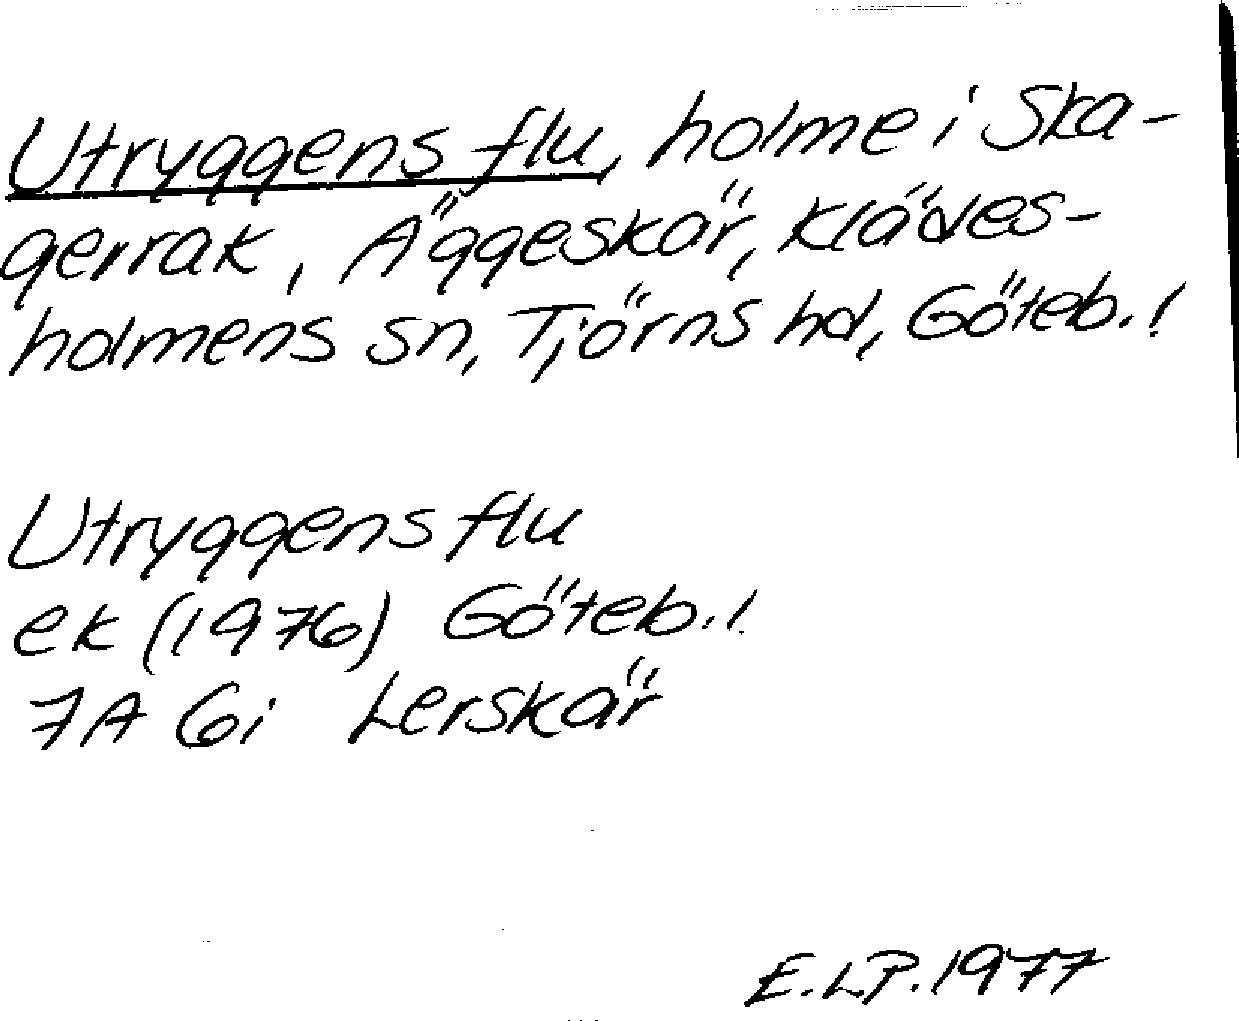 Utryggens flu, holme i Ska-
gerrak, Äggeskär, Klädes-
holmens sn, Tjörns hd, Göteb.l
Utryggens flu
ek (1976) Göteb.l.
7A 6i Lerskär
E.L.P. 1977